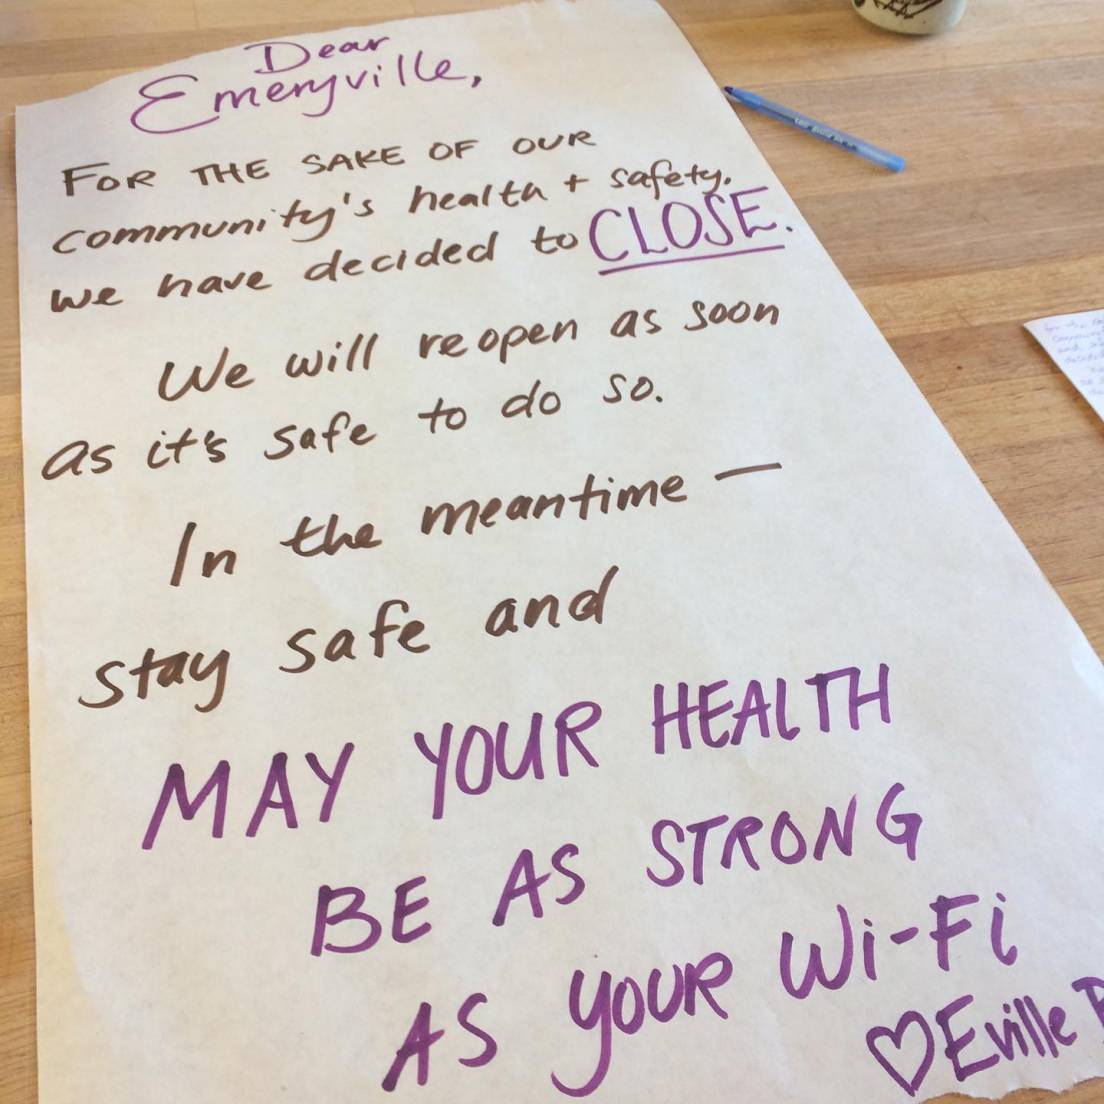 Dear
Emeryville,
FOR THE SAKE OF OUR
community's health + safety,
we have decided to CLOSE.
We will reopen as soon
as it's safe to do so.
In the meantime —
stay safe and
MAY YOUR HEALTH
BE AS STRONG
AS YOUR Wi-Fi
♡ Eville